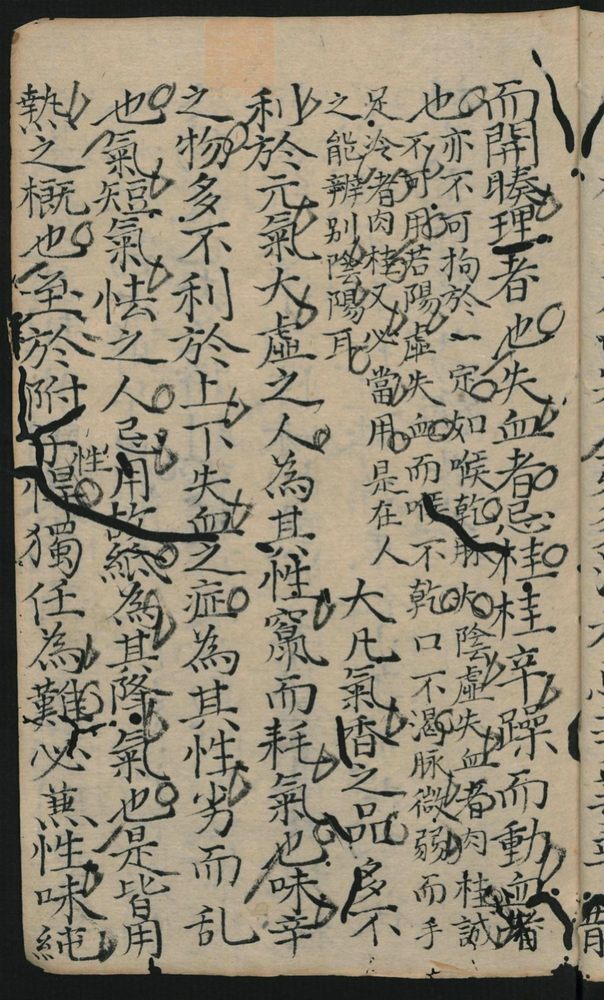 而開腠理者也失血者忌桂桂辛躁而動血者
也亦不可拘於一定如喉乾脉大陰虛失血者肉桂誠
不可用若陽虛失血而喉不乾口不渴脉微弱而手
足冷者肉桂又必當用是在人
之能辨别陰陽耳
大凡氣香之品多不
利於元氣大虛之人為其性竄而耗氣也味辛
之物多不利於上下失血之症為其性劣而乱
也氣短氣怯之人忌用故紙為其降氣也是皆用
熱之概也至於附子性悍獨任為難必蕉性味純